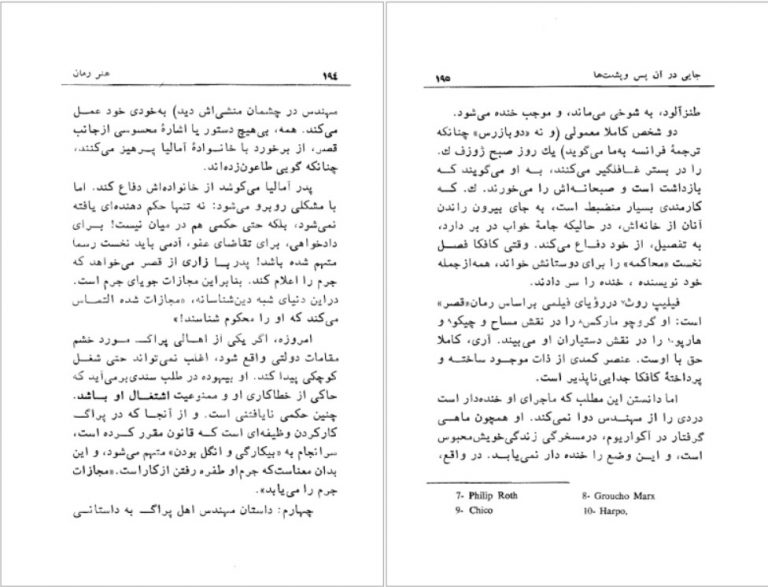 ۱۹۴ هنر رمان
مهندس در چشمان منشی‌اش دید) به‌خودی خود عمـل
می‌کند. همه، بی‌هیچ دستور یا اشارۀ محسوسی ازجانب
قصر، از برخورد با خانـوادۀ آمالیا پـرهیز می‌کنند،
چنانکه گویی طاعون‌زده‌اند.
پدر آمالیا می‌کوشد از خانواده‌اش دفاع کند. اما
با مشکلی روبرو می‌شود: نه تنهـا حکم دهنده‌ای یافته
نمی‌شود، بلکه حتی حکمی هم در میان نیست! بـرای
دادخواهی، برای تقاضای عفو، آدمی باید نخست رسماً
متهم شده باشد! پدر بـا زاری از قصر می‌خواهد که
جرم را اعلام کند. بنابراین مجازات جویای جرم است.
دراین دنیای شبه دین‌شناسانه، «مجازات شده التماس
می‌کند که او را محکوم شناسند!»
امروزه، اگر یکی از اهـالی پراگ مـورد خشم
مقامات دولتی واقع شود، اغلب نمی‌تواند حتی شغـل
کوچکی پیدا کند. او بیهوده در طلب سندی برمی‌آید که
حاکی از خطاکاری او و ممنوعیت اشتغـال او بـاشد.
چنین حکمی نایافتنی است. و از آنجـا که در پراگ
کارکردن وظیفه‌ای است کـه قانون مقرر کـرده است،
سرانجام به «بیکارگی و انگل بودن» متهم می‌شود، و این
بدان معناست‌که جرم‌او طفره رفتن ازکاراست. «مجازات
جرم را می‌یابد».
چهارم: داستان مهندس اهل پراگ به داستانـی
جایی در آن پس وپشت‌ها ۱۹۵
طنزآلود، به شوخی می‌ماند، و موجب خنده می‌شود.
دو شخص کاملا معمولی (و نه «دوبازرس» چنانکه
ترجمۀ فرانسه به‌ما می‌گوید) یك روز صبح ژوزف ك.
را در بستر غـافلگیر می‌کنند، به او می‌گویند کـه
بازداشت است و صبحانـه‌اش را می‌خورند. ك. کـه
کارمندی بسیار منضبط است، به جای بیرون رانـدن
آنان از خانه‌اش، در حالیکه جامۀ خواب در بر دارد،
به تفصیل، از خود دفـاع می‌کند. وقتی کافکا فصـل
نخست «محاکمه» را برای دوستانش خواند، همه‌ازجمله
خود نویسنده، خنده را سر دادند.
فیلیپ روث۷ دررؤیای فیلمی براساس رمان«قصر»
است: او گروچو مارکس۸ را در نقش مساح و چیکو۹ و
هارپو۱۰ را در نقش دستیاران او می‌بیند. آری، کاملا
حق با اوست. عنصر کمدی از ذات موجـود ساختـه و
پرداختۀ کافکا جدایی‌ناپذیر است.
اما دانستن این مطلب که ماجرای او خنده‌دار است
دردی را از مهنـدس دوا نمی‌کند. او همچون ماهـی
گرفتار در آکواریوم، درمسخرگی زندگی‌خویش‌محبوس
است، و ایـن وضع را خنده دار نمی‌یابـد. در واقع،
7- Philip Roth 8- Groucho Marx
9- Chico 10- Harpo,